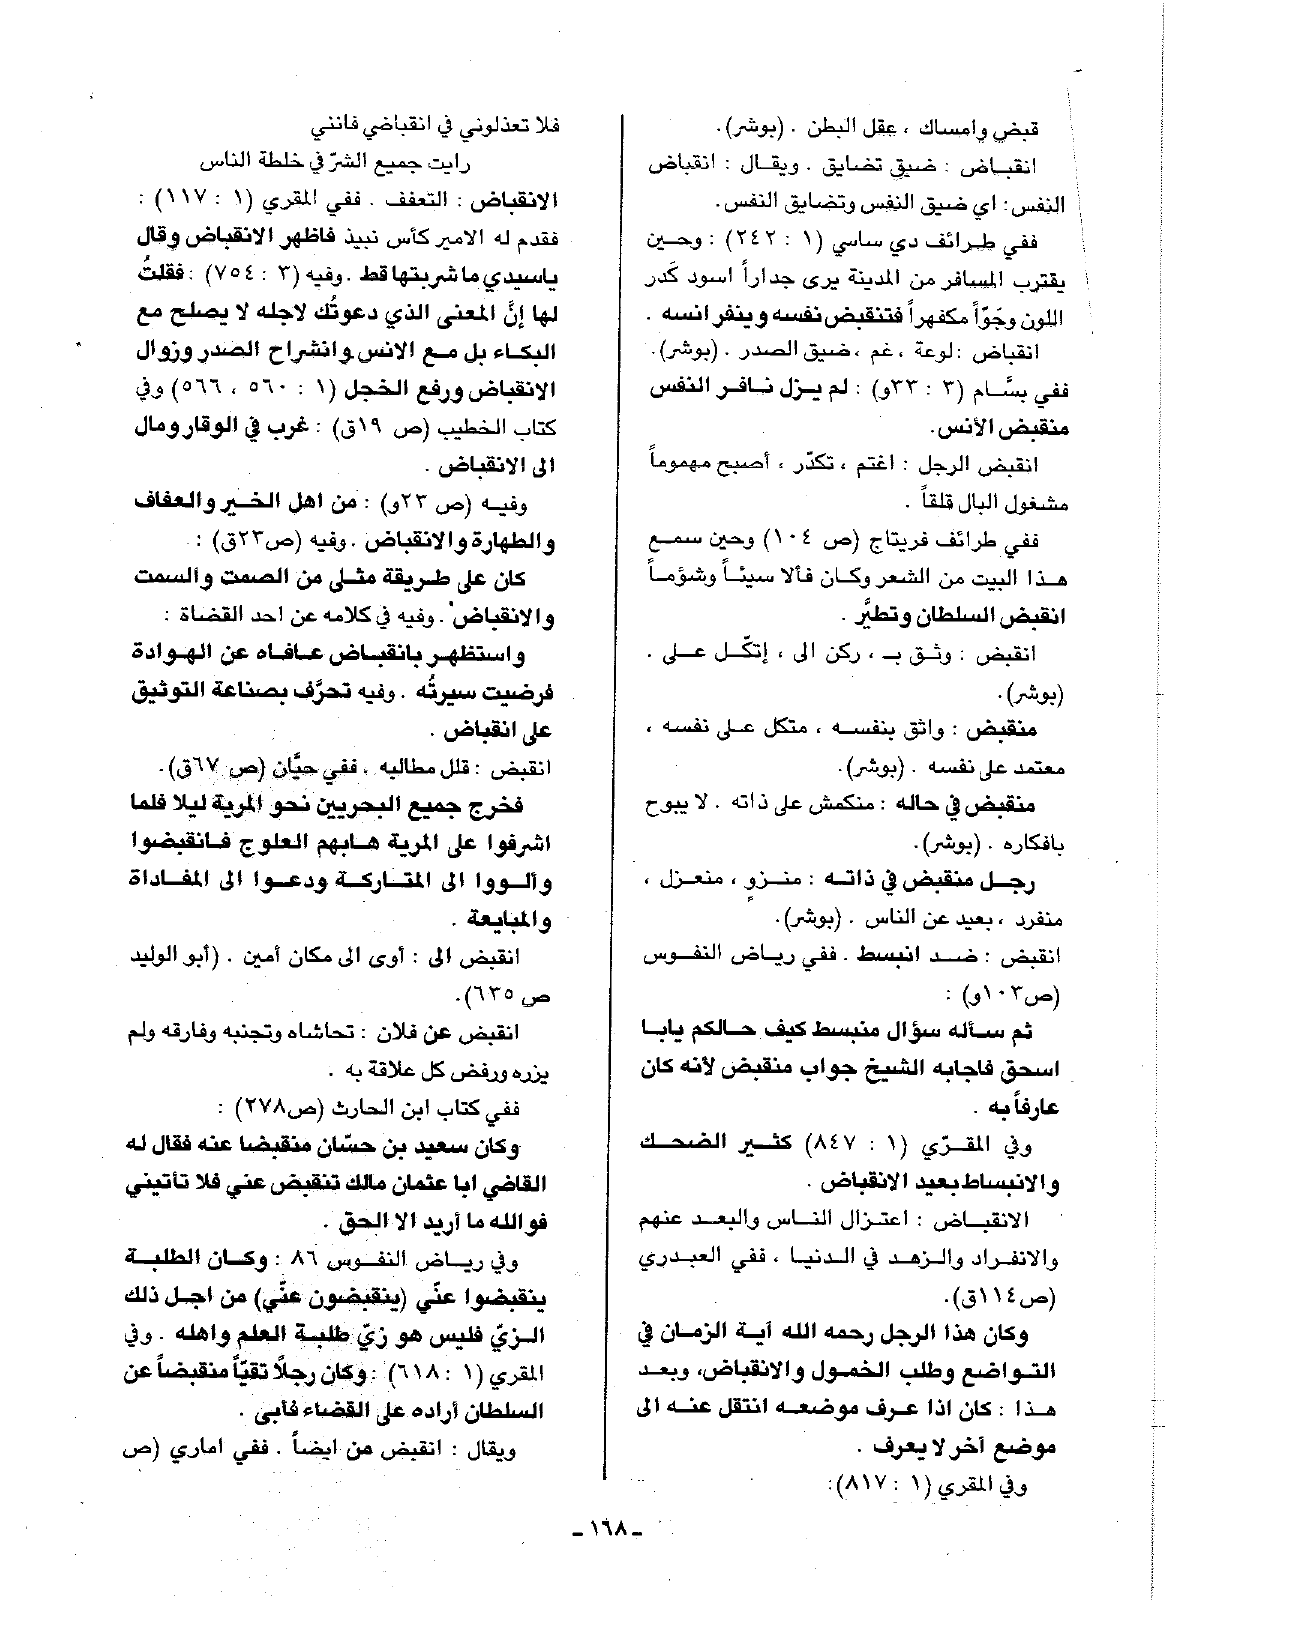 قبض وامساك ، عقل البطن . (بوشر).
انقباض : ضيق تضايق . ويقال : انقباض
النفس: اي ضيق النفس وتضايق النفس.
ففي طرائف دي ساسي (١ : ٢٤٢) : وحين
يقترب المسافر من المدينة يرى جداراً اسود كدر
اللون وجوّاً مكفهراً فتنقبض نفسه وينفر انسه .
انقباض : لوعة ، غم ، ضيق الصدر . (بوشر).
ففي بسّام (٣ : ٣٣و) : لم يزل نافر النفس
منقبض الأنس.
انقبض الرجل : اغتم ، تكدّر ، أصبح مهموماً
مشغول البال قلقاً .
ففي طرائف فريتاج (ص ١٠٤) وحين سمع
هذا البيت من الشعر وكان فألا سيئاً وشؤماً
انقبض السلطان وتطيَّر .
انقبض : وثق بـ ، ركن الى ، إتكّل على .
(بوشر).
منقبض : واثق بنفسه ، متكل على نفسه ،
معتمد على نفسه . (بوشر).
منقبض في حاله : منكمش على ذاته . لا يبوح
بافكاره . (بوشر).
رجل منقبض في ذاته : منزوٍ ، منعزل ،
منفرد ، بعيد عن الناس . (بوشر).
انقبض : ضد انبسط . ففي رياض النفوس
(ص١٠٣و) :
ثم سأله سؤال منبسط كيف حالكم يابا
اسحق فاجابه الشيخ جواب منقبض لأنه كان
عارفاً به .
وفي المقرّي (١ : ٨٤٧) كثير الضحك
والانبساط بعيد الانقباض .
الانقباض : اعتزال الناس والبعد عنهم
والانفراد والزهد في الدنيا ، ففي العبدري
(ص١١٤ق).
وكان هذا الرجل رحمه الله آية الزمان في
التواضع وطلب الخمول والانقباض، وبعد
هذا : كان اذا عرف موضعه انتقل عنه الى
موضع آخر لا يعرف .
وفي المقري (١ : ٨١٧):
فلا تعذلوني في انقباضي فانني
رايت جميع الشرّ في خلطة الناس
الانقباض : التعفف . ففي المقري (١ : ١١٧) :
فقدم له الامير كأس نبيذ فاظهر الانقباض وقال
ياسيدي ما شربتها قط . وفيه (٣ : ٧٥٤) : فقلتُ
لها إنَّ المعنى الذي دعوتُك لاجله لا يصلح مع
البكاء بل مع الانس وانشراح الصدر وزوال
الانقباض ورفع الخجل (١ : ٥٦٠ ، ٥٦٦) وفي
كتاب الخطيب (ص ١٩ق) : غرب في الوقار ومال
الى الانقباض .
وفيه (ص ٢٣و) : من اهل الخير والعفاف
والطهارة والانقباض . وفيه (ص٢٣ق) :
كان على طريقة مثلى من الصمت والسمت
والانقباض . وفيه في كلامه عن احد القضاة :
واستظهر بانقباض عافاه عن الهوادة
فرضيت سيرتُه . وفيه تحرَّف بصناعة التوثيق
على انقباض .
انقبض : قلل مطالبه . ففي حيَّان (ص ٦٧ق).
فخرج جميع البحريين نحو المرية ليلا فلما
اشرفوا على المرية هابهم العلوج فانقبضوا
وألووا الى المتاركة ودعوا الى المفاداة
والمبايعة .
انقبض الى : أوى الى مكان أمين . (أبو الوليد
ص ٦٣٥).
انقبض عن فلان : تحاشاه وتجنبه وفارقه ولم
يزره ورفض كل علاقة به .
ففي كتاب ابن الحارث (ص٢٧٨) :
وكان سعيد بن حسّان منقبضا عنه فقال له
القاضي ابا عثمان مالك تنقبض عني فلا تأتيني
فوالله ما أريد الا الحق .
وفي رياض النفوس ٨٦ : وكان الطلبة
ينقبضوا عنّي (ينقبضون عنّي) من اجل ذلك
الزيّ فليس هو زيّ طلبة العلم واهله . وفي
المقري (١ : ٦١٨) : وكان رجلاً تقيّاً منقبضاً عن
السلطان أراده على القضاء فأبى .
ويقال : انقبض من ايضاً . ففي اماري (ص
ـ ١٦٨ ـ